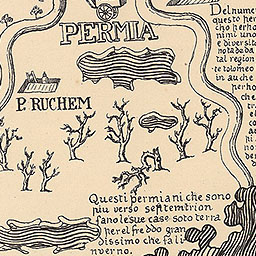 PERMIA
P. RUCHEM
Del nume
questo per
cho perho
nini uno
e diversita
nota da da
tal region
te tolomeo
in auche
perho
che
Questi permiani che sono
piu verso septemtrion
fano le sue case soto terra
per el freddo gran
dissimo che fa li
nverno.